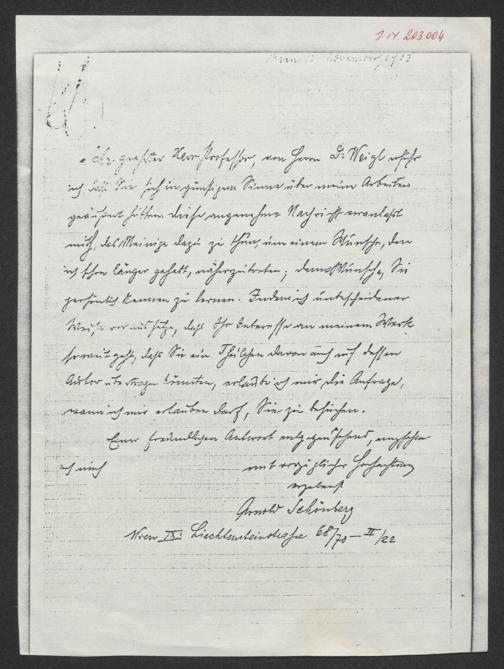 J.N. 203004
November 1903
Sehr geehrter Herr Professor, von Herrn Dr. Weigl erfuhr
ich, daß Sie sich in günstigem Sinne über meine Arbeiten
geäußert hätten. Diese angenehme Nachricht veranlaßt
mich, das Meinige dazu zu thun, um einem Wunsche, den
ich schon länger gehabt, näherzutreten; dem Wunsche, Sie
persönlich kennen zu lernen. Indem ich unbescheidener
Weise voraussetze, daß Ihr Interesse an meinem Werk
soweit geht, daß Sie ein Theilchen davon auch auf dessen
Autor übertragen könnten, erlaube ich mir die Anfrage,
wann ich mir erlauben darf, Sie zu besuchen.
Einer freundlichen Antwort entgegensehend, empfehle
ich mich mit vorzüglicher Hochachtung
ergebenst
Arnold Schönberg
Wien IX. Liechtensteinstrasse 68/70 – II/22